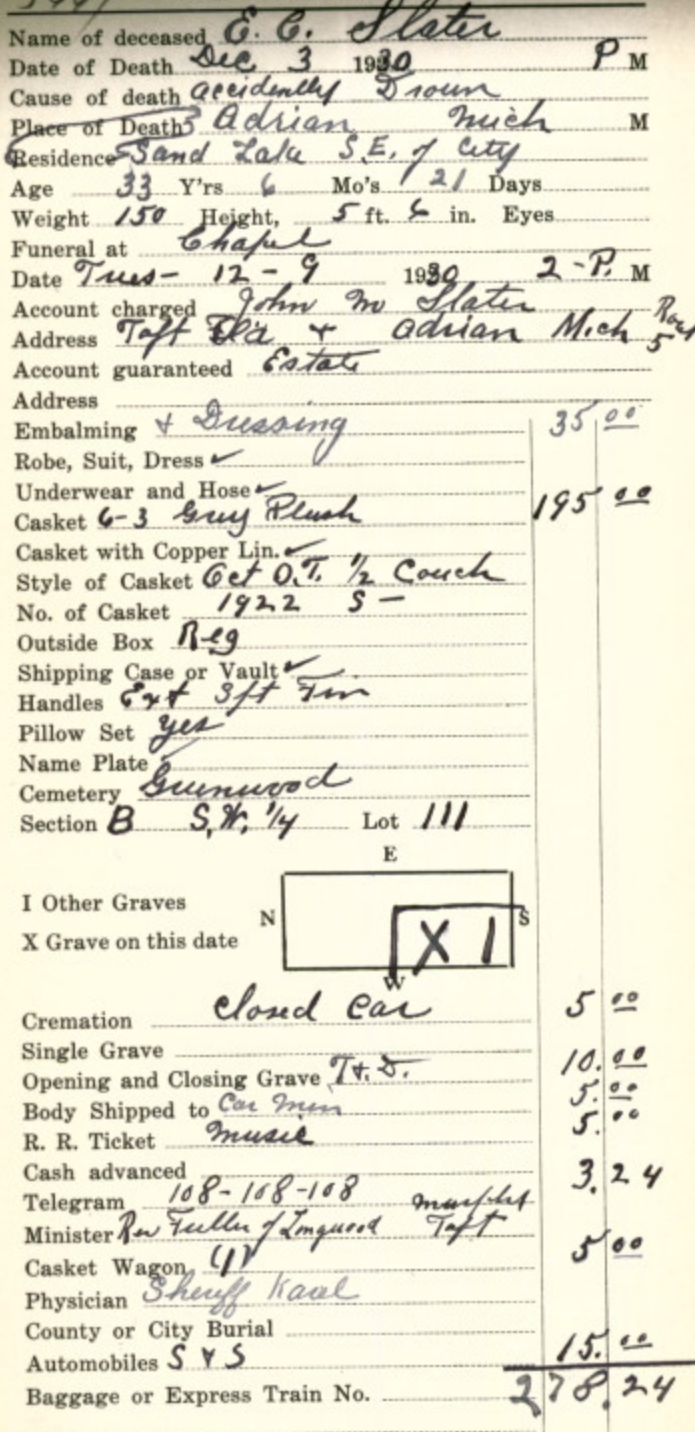 Name of deceased E. C. Slater
Date of Death Dec 3 1930 P M
Cause of death accidently Drown
Place of Death Adrian Mich M
Residence Sand Lake S.E. of City
Age 33 Y'rs 6 Mo's 21 Days
Weight 150 Height, 5 ft. 6 in. Eyes
Funeral at Chapel
Date Tues- 12-9 1930 2-P. M
Account charged John M Slater
Address Taft Fla + Adrian Mich Rout 5
Account guaranteed Estate
Address
Embalming + Dressing 35 00
Robe, Suit, Dress ✓
Underwear and Hose ✓
Casket 6-3 Grey Plush 195 00
Casket with Copper Lin. ✓
Style of Casket Oct O.T. 1/2 Couch
No. of Casket 1922 S -
Outside Box Reg
Shipping Case or Vault ✓
Handles Ext 3ft
Pillow Set yes
Name Plate
Cemetery Greenwood
Section B S.W. 1/4 Lot 111
E
I Other Graves
N S
X Grave on this date X 1
W
Cremation Closed Car 5 00
Single Grave
Opening and Closing Grave T+.D. 10.00
Body Shipped to Car Men 5.00
R. R. Ticket Music 5.00
Cash advanced
Telegram 108-108-108 3.24
Minister Rev Fuller of Longwood Taft
Casket Wagon (1) 5 00
Physician Sheriff Karel
County or City Burial
Automobiles S & S 15.00
Baggage or Express Train No. 278.24